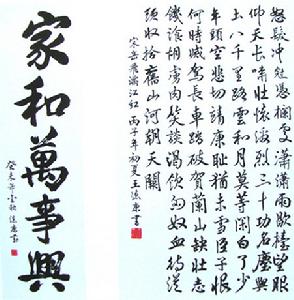 家和萬事興
癸未年金秋遠康書
怒髮冲冠憑欄處瀟瀟雨歇抬望眼
仰天長嘯壯懷激烈三十功名塵與
土八千里路雲和月莫等閑白了少
年頭空悲切靖康耻猶未雪臣子恨
何時滅駕長車踏破賀蘭山缺壯志
饑餐胡虜肉笑談渴飲匈奴血待從
頭收拾舊山河朝天闕
宋岳飛滿江紅 丙子年初夏王遠康書